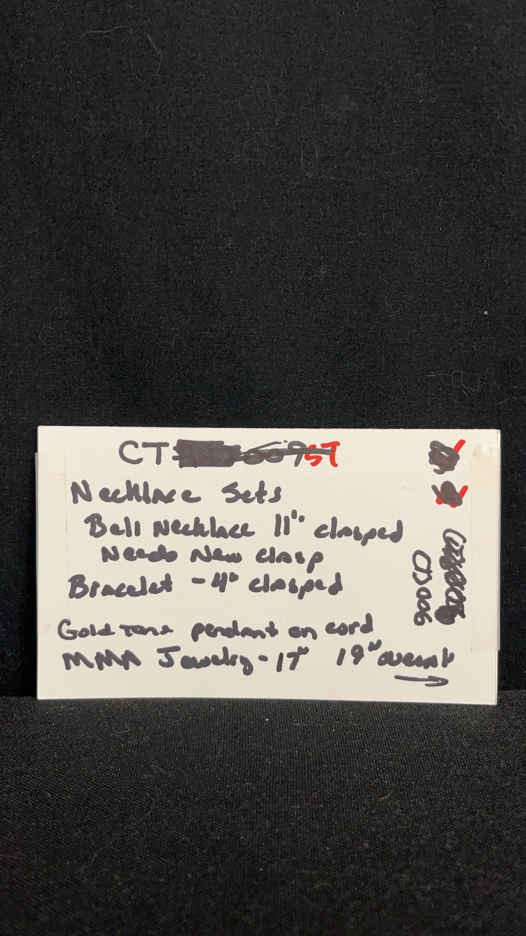 CT ST
Necklace Sets
Ball Necklace 11" clasped
Needs New clasp
Bracelet - 4" clasped
Gold Tone pendant on cord
MMA Jewelry - 17" 19" overall
CJ006